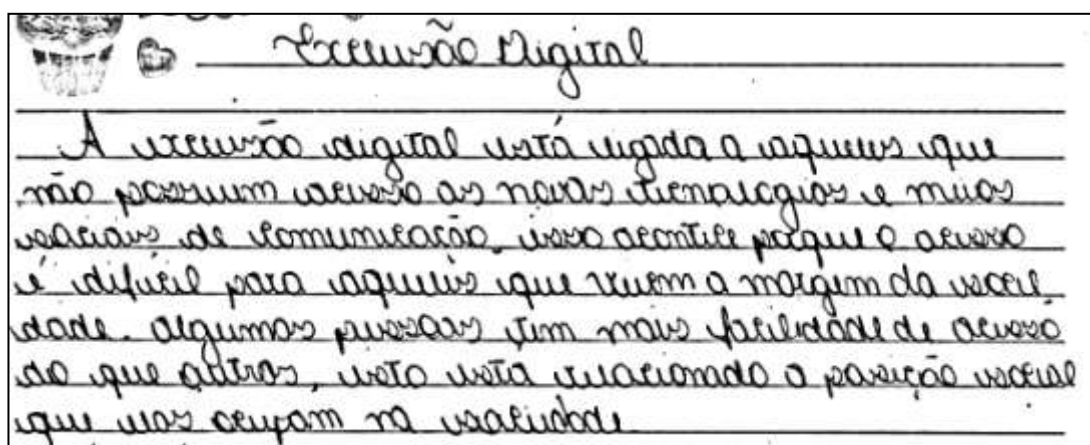 Exclusão Digital
A exclusão digital está ligada a aqueles que
não possuem acesso as novas tecnologias e meios
sociais de comunicação. isso acontece porque o acesso
é difícil para aqueles que vivem a margem da socie
dade. algumas pessoas tem mais facilidade de acesso
do que outras, isto está relacionado a posição social
que elas ocupam na sociedade